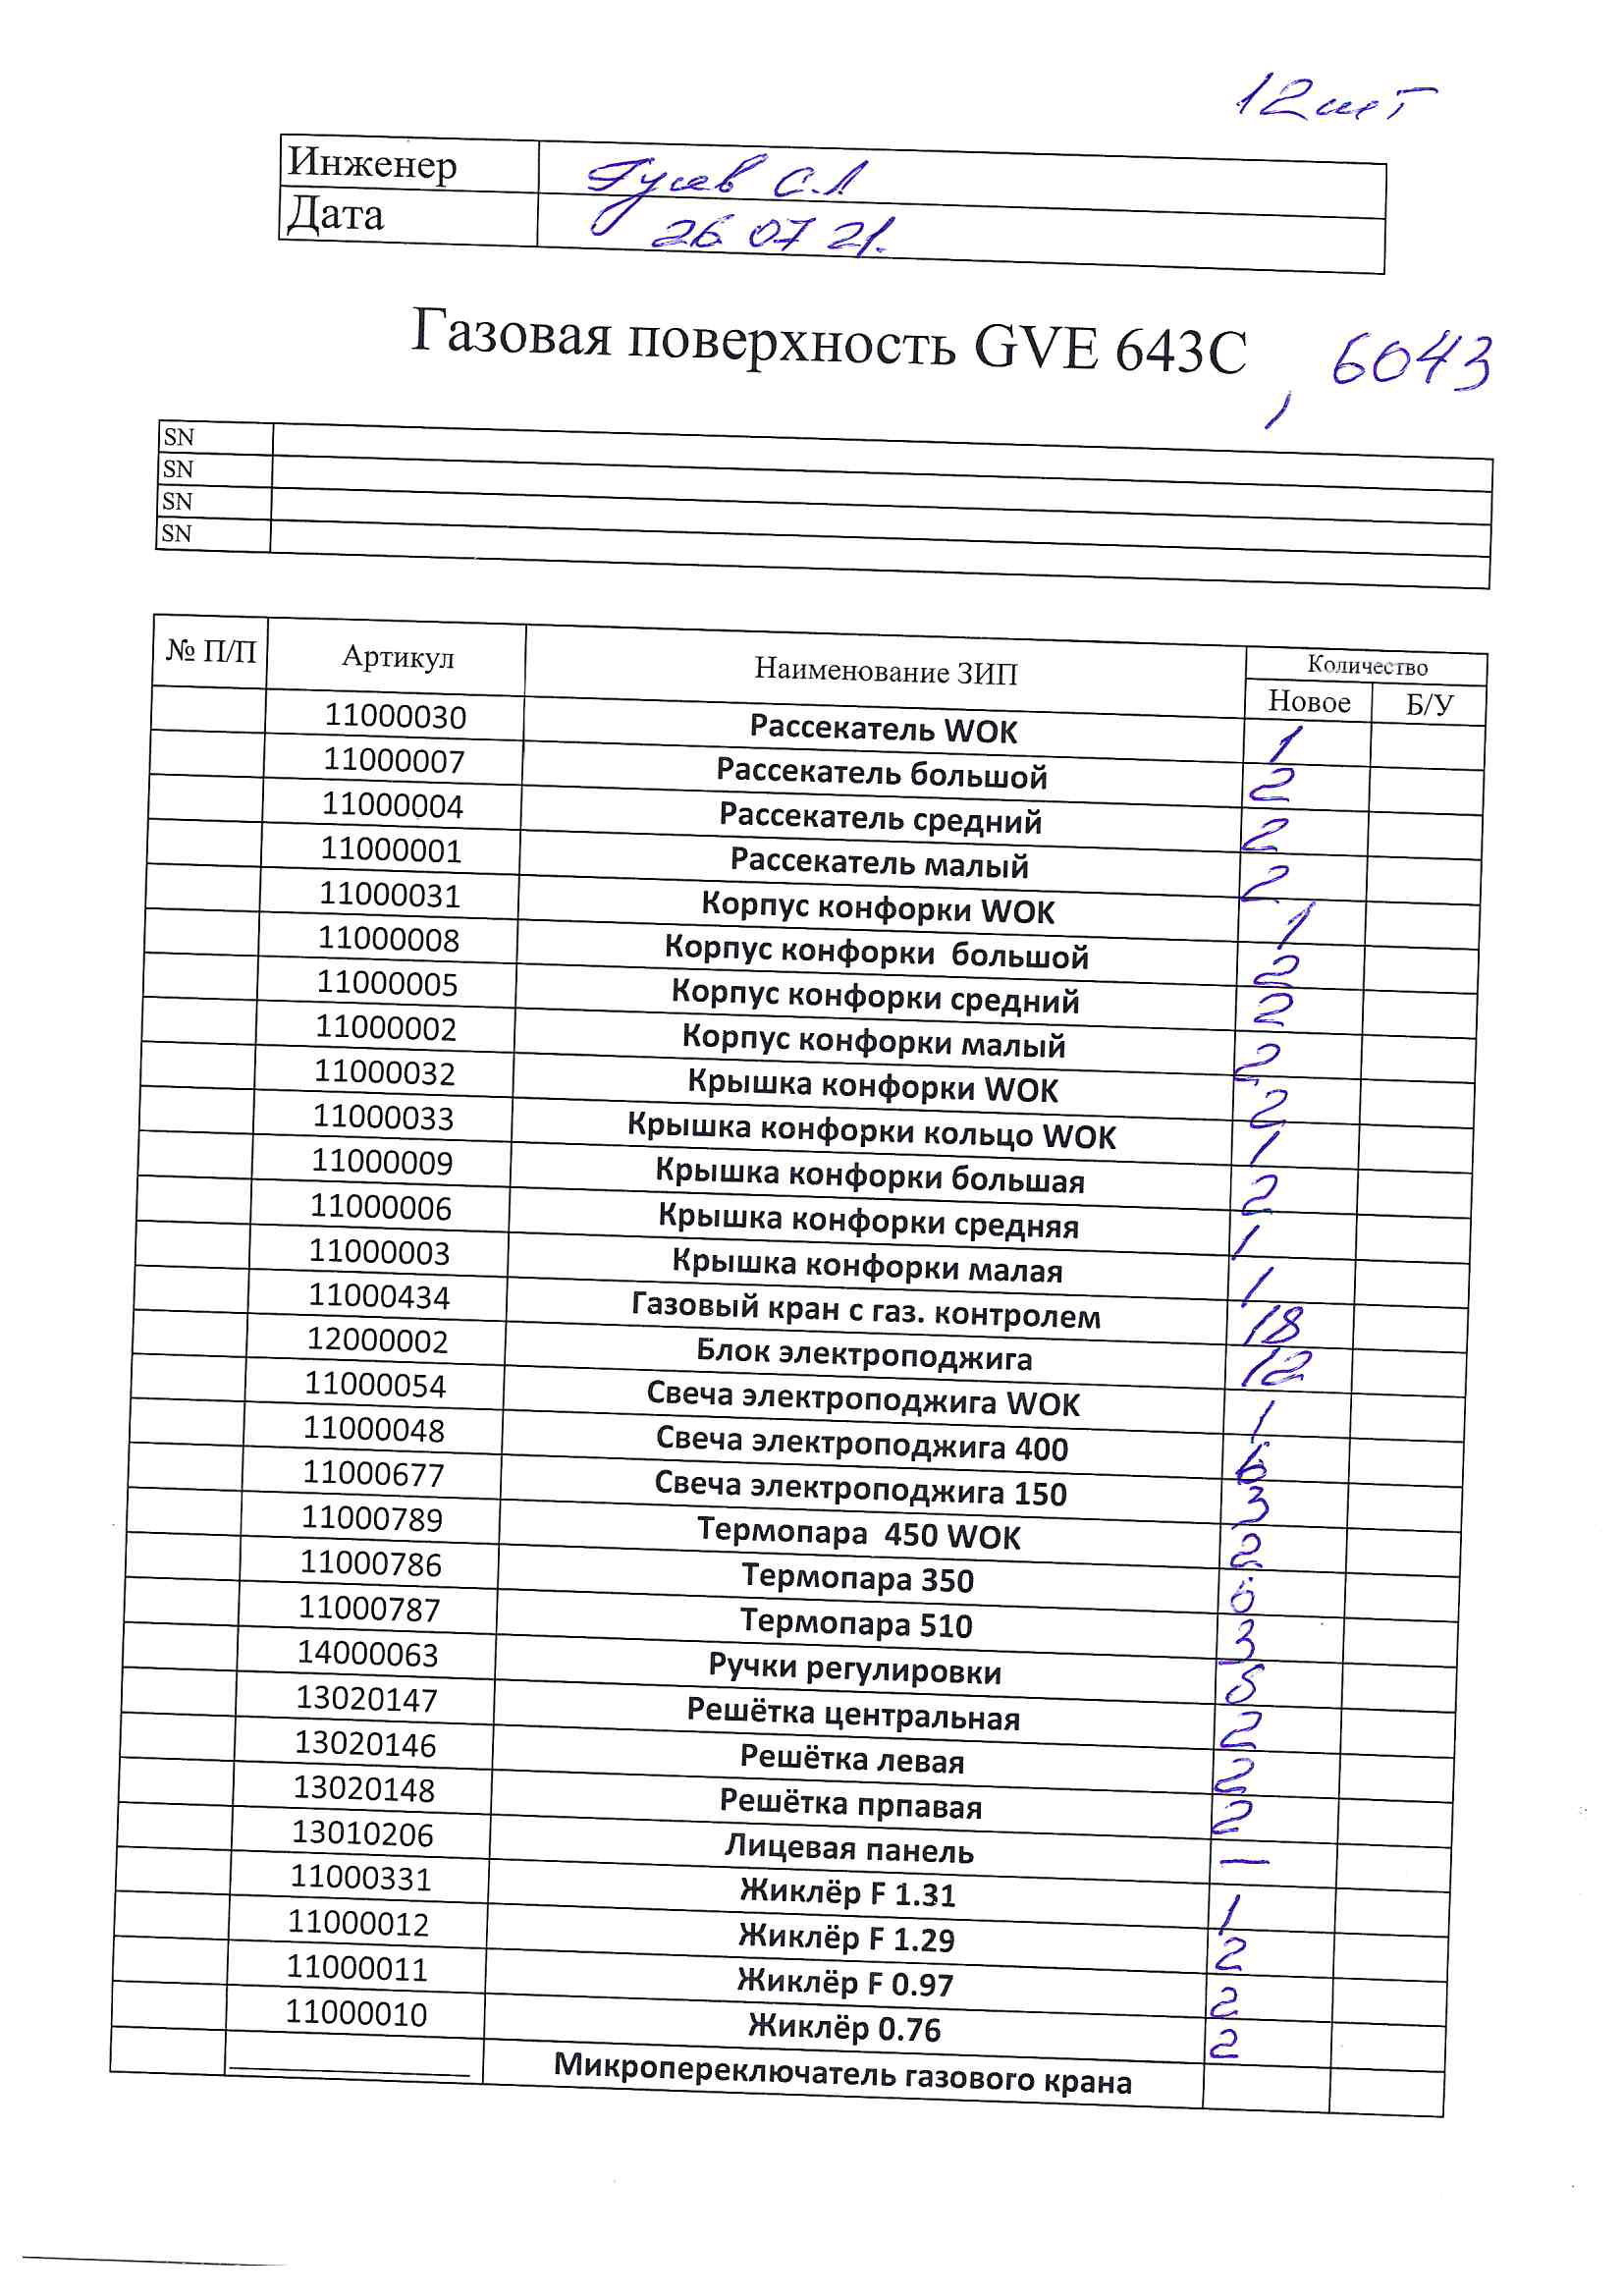 12 шт
Инженер Гусев С.Л
Дата 26.07 21.
Газовая поверхность GVE 643C , 6043
SN
SN
SN
SN
№ П/П Артикул Наименование ЗИП Количество
Новое Б/У
11000030 Рассекатель WOK 1
11000007 Рассекатель большой 2
11000004 Рассекатель средний 2
11000001 Рассекатель малый 2
11000031 Корпус конфорки WOK 1
11000008 Корпус конфорки большой 2
11000005 Корпус конфорки средний 2
11000002 Корпус конфорки малый 2
11000032 Крышка конфорки WOK 2
11000033 Крышка конфорки кольцо WOK 1
11000009 Крышка конфорки большая 2
11000006 Крышка конфорки средняя 1
11000003 Крышка конфорки малая 1
11000434 Газовый кран с газ. контролем 18
12000002 Блок электроподжига 12
11000054 Свеча электроподжига WOK 1
11000048 Свеча электроподжига 400 6
11000677 Свеча электроподжига 150 3
11000789 Термопара 450 WOK 2
11000786 Термопара 350
11000787 Термопара 510 3
14000063 Ручки регулировки
13020147 Решётка центральная 2
13020146 Решётка левая 2
13020148 Решётка прпавая 2
13010206 Лицевая панель —
11000331 Жиклёр F 1.31 1
11000012 Жиклёр F 1.29 2
11000011 Жиклёр F 0.97 2
11000010 Жиклёр 0.76 2
Микропереключатель газового крана